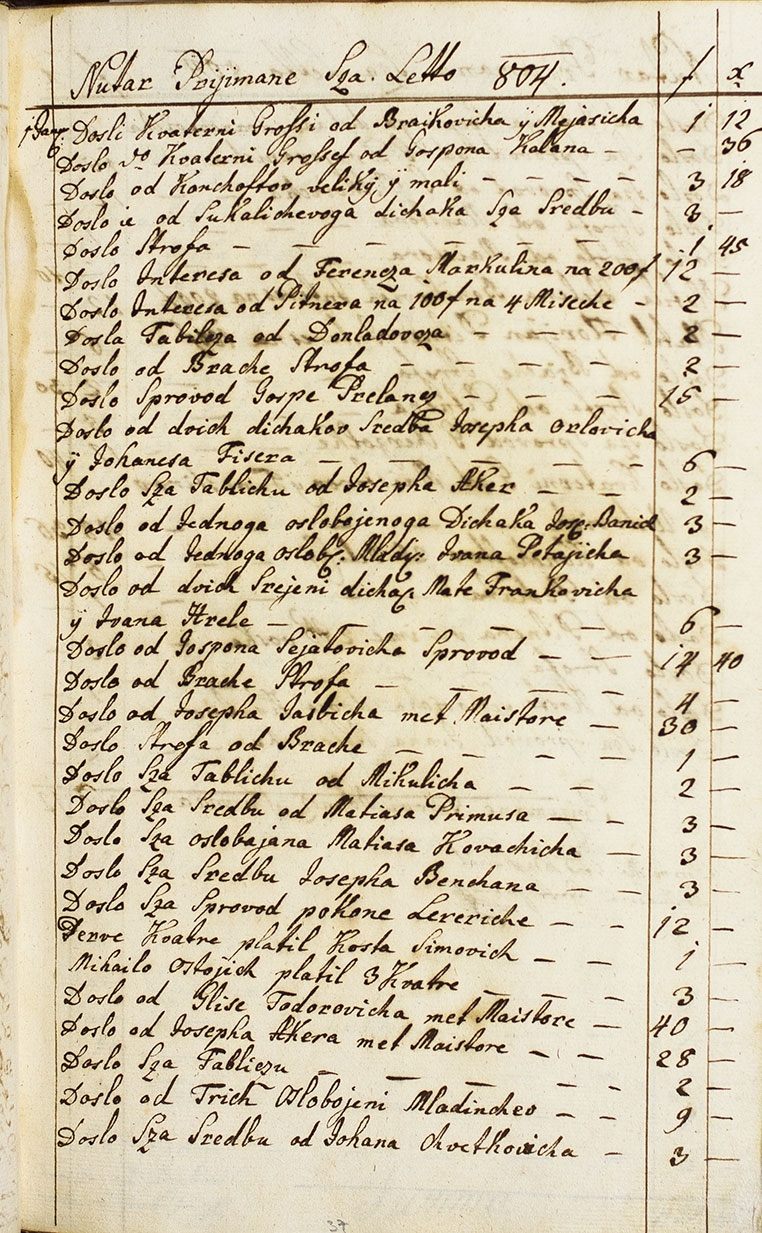 Nutar Prijimane Sza. Letto 804. f x
j Janr. Dosli Kvaterni Grossi od Braikovicha ÿ Mejasicha 1 12
6 Doslo do Kvaterni Grossef od Gospona Kalana – – 36
Doslo od Korchostov veliky ÿ mali – – – – 3 18
Doslo ie od Sukalichevoga dichaka Sza Sredbu – 3 –
Doslo Strofa – – – – – – 1 45
Doslo Interesa od Ferencza Markulina na 200f 12 –
Doslo Interesa od Pitnera na 100f na 4 Miseche – 2 –
Dosla Tabilcza od Donladovcza – – – – 2 –
Doslo od Brache Strofa – – – – – 2 –
Doslo Sprovod Gospe Prelany – – – 15 –
Doslo od dvich dichakov Sredba Josepha Orlovicha
ÿ Johanesa Fisera – – – – – 6 –
Doslo Sza Tablichu od Josepha Aker – – 2 –
Doslo od Jednoga oslobojenoga Dichaka Josp. Danich 3 –
Doslo od Jednoga oslob. Mlady: Ivana Potajicha 3 –
Doslo od dvich Srejeni dichag Mate Frankovicha
ÿ Ivana Hrele – – – – – 6 –
Doslo od Gospona Sejatovicha Sprovod – – 14 40
Doslo od Brache Strofa – – – – 4 –
Doslo od Josepha Jasbicha met Maistore – 30 –
Doslo Strofa od Brache – – – – 1 –
Doslo Sza Tablichu od Mikulicha – – 2 –
Doslo Sza Sredbu od Matiasa Primusa – – 3 –
Doslo Sza oslobajana Matiasa Kovachicha – 3 –
Doslo Sza Sredbu Josepha Benchana – – 3 –
Doslo Sza Sprovod pokone Lereriche – – 12 –
Perve Kvatre platil Kosta Simovich – – 1 –
Mihailo Ostojich platil 3 Kvatre – – – 3 –
Doslo od Glise Todorovicha met Maistore – 40 –
Doslo od Josepha Akera met Maistore – – 28 –
Doslo Sza Tabliczu – – – – – 2 –
Doslo od Trich Oslobojeni Mladinchev – – 9 –
Doslo Sza Sredbu od Johana Chvetkovicha – 3 –
37